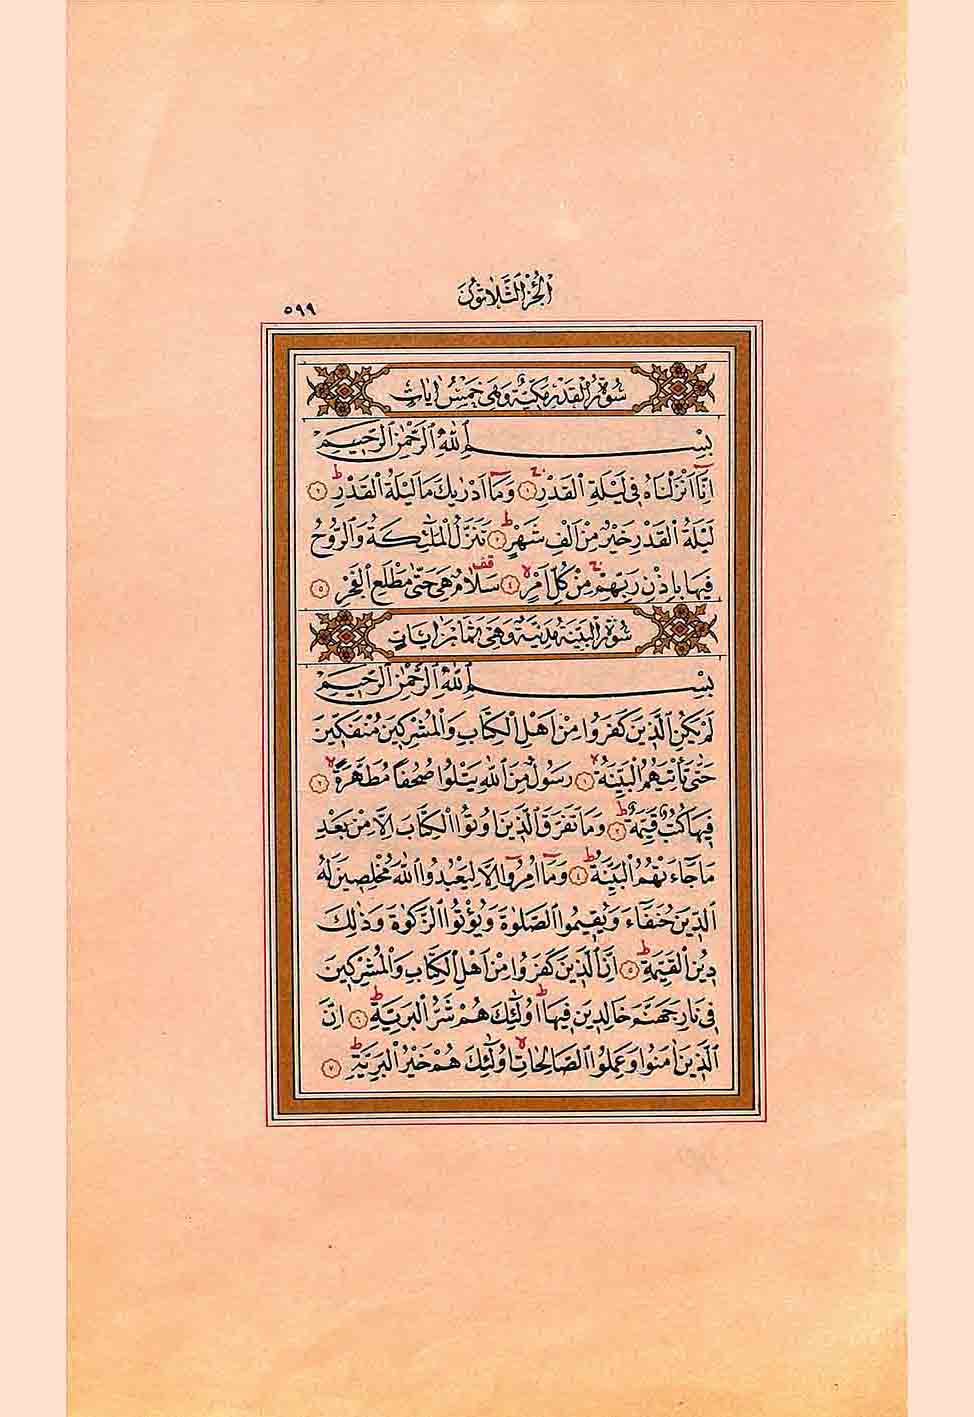 اَلْجُزْءُ الثَّلَاثُونَ
٥٩٩
سُورَةُ الْقَدْرِ مَكِّيَّةٌ وَهِيَ خَمْسُ اٰيَاتٍ
بِسْمِ اللّٰهِ الرَّحْمٰنِ الرَّحِيمِ
اِنَّٓا اَنْزَلْنَاهُ فِي لَيْلَةِ الْقَدْرِۚ ﴿١﴾ وَمَٓا اَدْرٰيكَ مَا لَيْلَةُ الْقَدْرِۜ ﴿٢﴾
لَيْلَةُ الْقَدْرِ خَيْرٌ مِنْ اَلْفِ شَهْرٍۜ ﴿٣﴾ تَنَزَّلُ الْمَلٰٓئِكَةُ وَالرُّوحُ
فِيهَا بِاِذْنِ رَبِّهِمْۚ مِنْ كُلِّ اَمْرٍۙ ﴿٤﴾ سَلَامٌ۠ هِيَ حَتّٰى مَطْلَعِ الْفَجْرِ ﴿٥﴾
سُورَةُ الْبَيِّنَةِ مَدَنِيَّةٌ وَهِيَ ثَمَانِ اٰيَاتٍ
بِسْمِ اللّٰهِ الرَّحْمٰنِ الرَّحِيمِ
لَمْ يَكُنِ الَّذِينَ كَفَرُوا مِنْ اَهْلِ الْكِتَابِ وَالْمُشْرِكِينَ مُنْفَكِّينَ
حَتّٰى تَأْتِيَهُمُ الْبَيِّنَةُۙ ﴿١﴾ رَسُولٌ مِنَ اللّٰهِ يَتْلُوا صُحُفًا مُطَهَّرَةًۙ ﴿٢﴾
فِيهَا كُتُبٌ قَيِّمَةٌۜ ﴿٣﴾ وَمَا تَفَرَّقَ الَّذِينَ اُوتُوا الْكِتَابَ اِلَّا مِنْ بَعْدِ
مَا جَٓاءَتْهُمُ الْبَيِّنَةُۜ ﴿٤﴾ وَمَٓا اُمِرُٓوا اِلَّا لِيَعْبُدُوا اللّٰهَ مُخْلِصِينَ لَهُ
الدِّينَ حُنَفَٓاءَ وَيُقِيمُوا الصَّلٰوةَ وَيُؤْتُوا الزَّكٰوةَ وَذٰلِكَ
دِينُ الْقَيِّمَةِۜ ﴿٥﴾ اِنَّ الَّذِينَ كَفَرُوا مِنْ اَهْلِ الْكِتَابِ وَالْمُشْرِكِينَ
فِي نَارِ جَهَنَّمَ خَالِدِينَ فِيهَاۜ اُولٰٓئِكَ هُمْ شَرُّ الْبَرِيَّةِۜ ﴿٦﴾ اِنَّ
الَّذِينَ اٰمَنُوا وَعَمِلُوا الصَّالِحَاتِۙ اُولٰٓئِكَ هُمْ خَيْرُ الْبَرِيَّةِۜ ﴿٧﴾